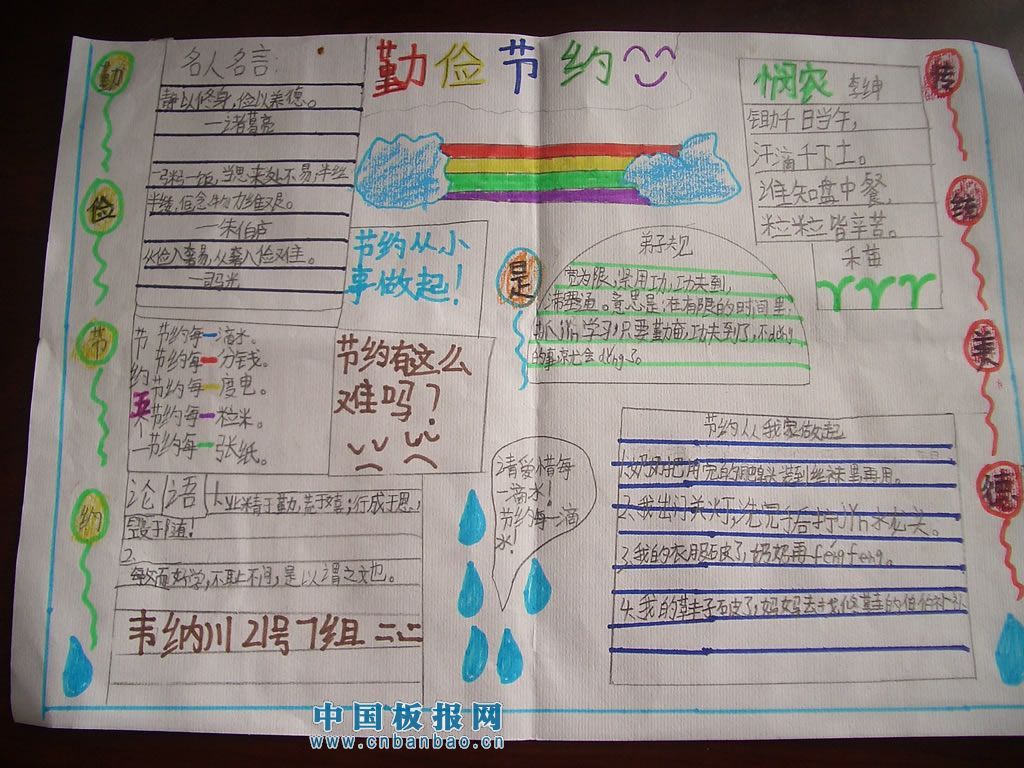 勤俭节约
勤
俭
节
约
名人名言:
静以修身,俭以养德。
—诸葛亮
一粥一饭,当思来处不易,半丝
半缕,恒念物力维艰。
—朱伯庐
从俭入奢易,从奢入俭难。
—司马光
节约从小
事做起!
节约每一滴水。
节约每一分钱。
节约每一度电。
节约每一粒米。
节约每一张纸。
节约有这么
难吗?
论语
1.业精于勤,荒于嬉;行成于思,
毁于随!
2.
敏而好学,不耻下问,是以谓之文也。
韦纳川 21号 7组 二(二)
是
弟子规
宽为限,紧用功,功夫到,
滞塞通。意思是:在有限的时间里
的事就会dǒng了。
悯农 李绅
锄禾日当午,
汗滴禾下土。
谁知盘中餐,
粒粒皆辛苦。
禾苗
请爱惜每
一滴水!
节约每一滴
水!
节约从我家做起
1.奶奶把用完的肥皂头装到丝袜里再用。
2.我出门关灯,洗完手后拧jǐn水龙头。
3.我的衣服破了,奶奶再féngfeng。
4.我的鞋子破了,妈妈去找修鞋的伯伯补
传
统
美
德
中国板报网
www.cnbanbao.cn